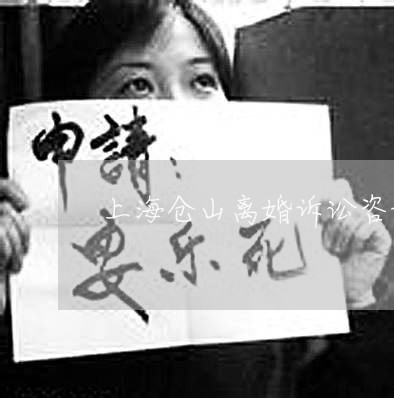 申請：
上海仓山离婚诉讼咨
安乐死